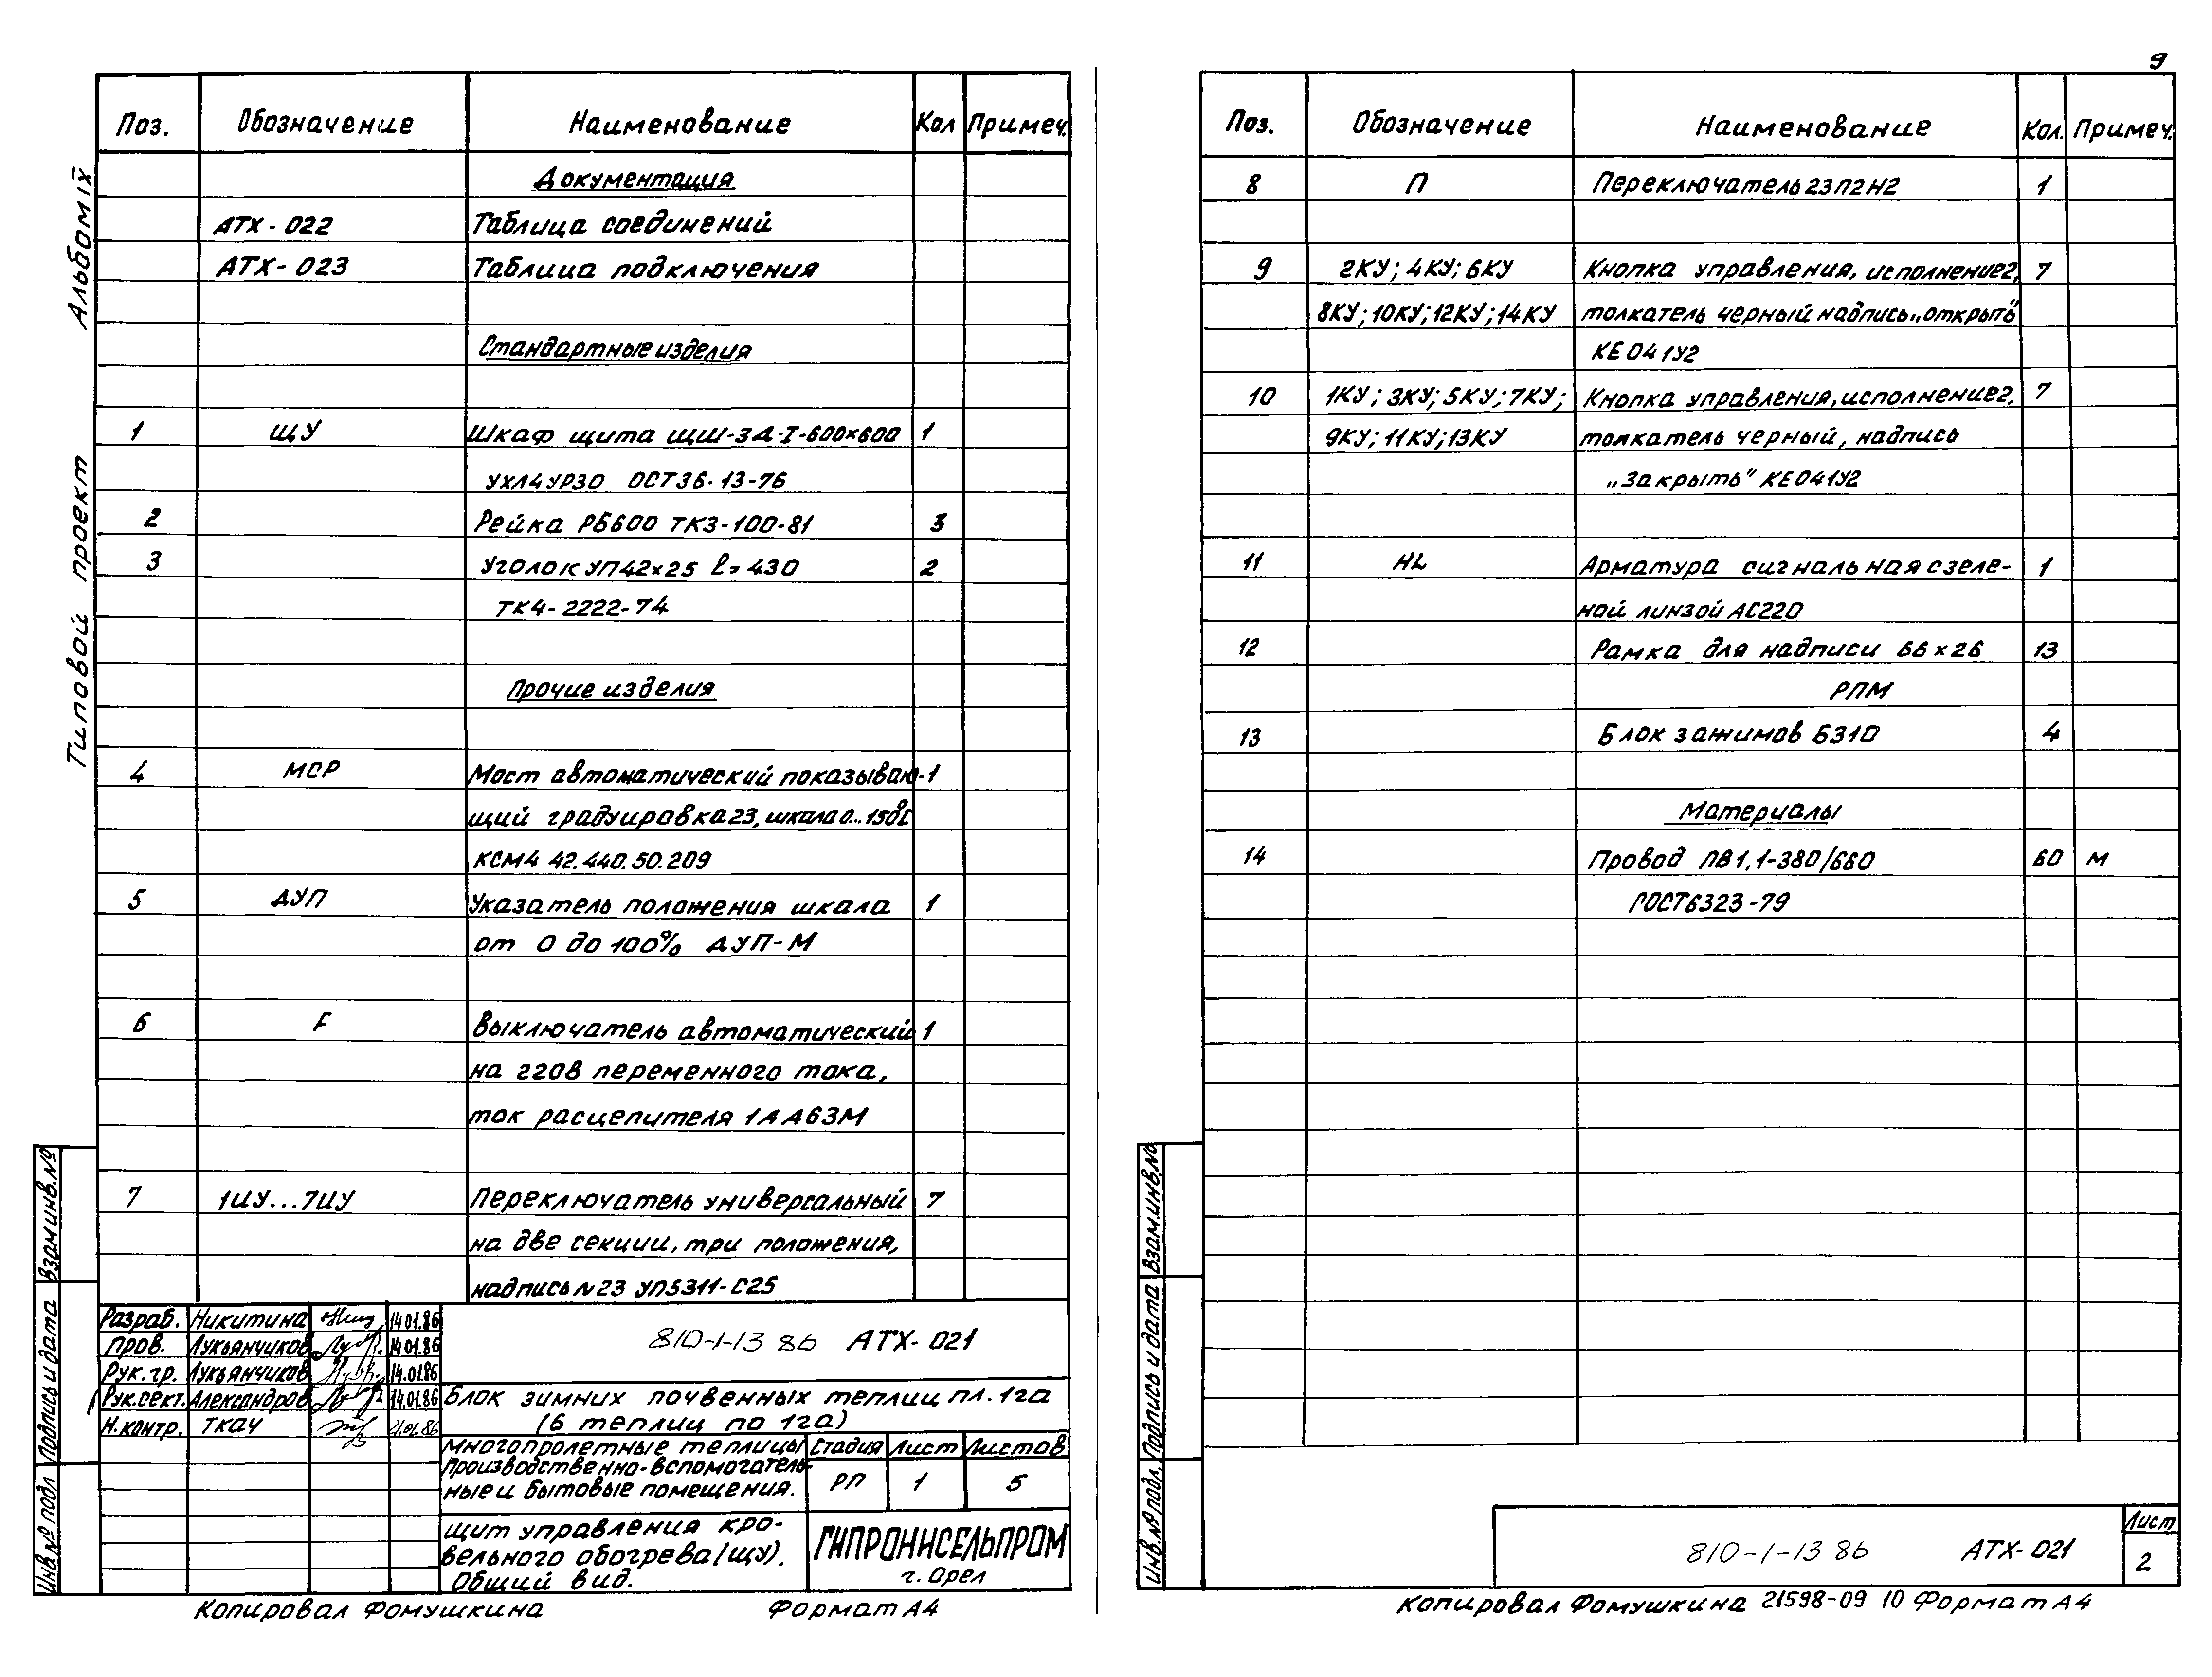 9
Альбом IX
Типовой проект
Поз. Обозначение Наименование Кол Примеч.
Документация
АТХ-022 Таблица соединений
АТХ-023 Таблица подключения
Стандартные изделия
1 ЩУ Шкаф щита ЩШ-ЗД-I-600×600 1
УХЛ4УР30 ОСТ36-13-76
2 Рейка РБ600 ТК3-100-81 3
3 Уголок УП42×25 l=430 2
ТК4-2222-74
Прочие изделия
4 МСР Мост автоматический показываю- 1
щий градуировка 23, шкала 0...150°С
КСМ4 42.440.50.209
5 ДУП Указатель положения шкала 1
от 0 до 100% ДУП-М
6 F Выключатель автоматический 1
на 220В переменного тока,
ток расцепителя 1А А63М
7 1ИУ...7ИУ Переключатель универсальный 7
на две секции, три положения,
надпись N23 УП5311-С25
Взам инв.№
Подпись и дата
Инв.№ подл
Разраб. Никитина 14.01.86
Пров. Лукьянчиков 14.01.86
Рук.гр. Лукьянчиков 14.01.86
Рук.сект. Александров 14.01.86
Н.контр. Ткач 21.01.86
810-1-13 86 АТХ-021
Блок зимних почвенных теплиц пл. 1га
(6 теплиц по 1га)
Многопролетные теплицы
Производственно-вспомогатель-
ные и бытовые помещения.
Стадия Лист Листов
РП 1 5
Щит управления кро-
вельного обогрева (ЩУ).
Общий вид.
ГИПРОНИСЕЛЬПРОМ
г. Орел
Копировал Фомушкина Формат А4
Поз. Обозначение Наименование Кол. Примеч.
8 П Переключатель 23П2Н2 1
9 2КУ; 4КУ; 6КУ Кнопка управления, исполнение 2, 7
8КУ; 10КУ; 12КУ; 14КУ толкатель черный надпись „открыть"
КЕ 041У2
10 1КУ; 3КУ; 5КУ; 7КУ; Кнопка управления, исполнение 2, 7
9КУ; 11КУ; 13КУ толкатель черный, надпись
„Закрыть" КЕ041У2
11 HL Арматура сигнальная с зеле- 1
ной линзой АС220
12 Рамка для надписи 66×26 13
РПМ
13 Блок зажимов Б310 4
Материалы
14 Провод ПВ1,1-380/660 60 м
ГОСТ6323-79
Взам.инв.№
Подпись и дата
Инв.№ подл.
810-1-13 86 АТХ-021
Лист
2
Копировал Фомушкина 21598-09 10 Формат А4